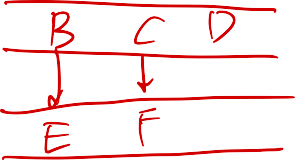 B C D
E F